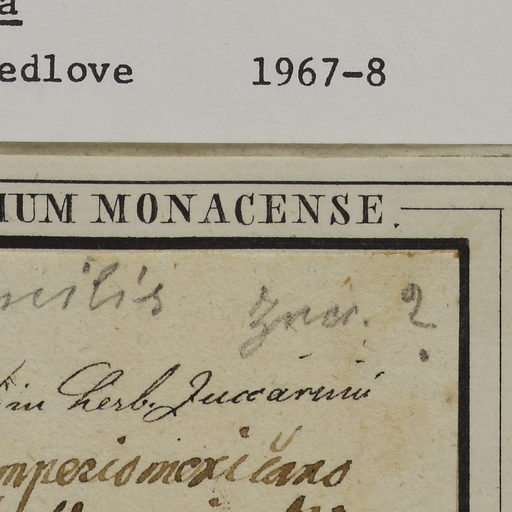 a
edlove 1967-8
IUM MONACENSE.
ilis Zucc. ?
in Herb. Zuccarinii
mperio mexicano